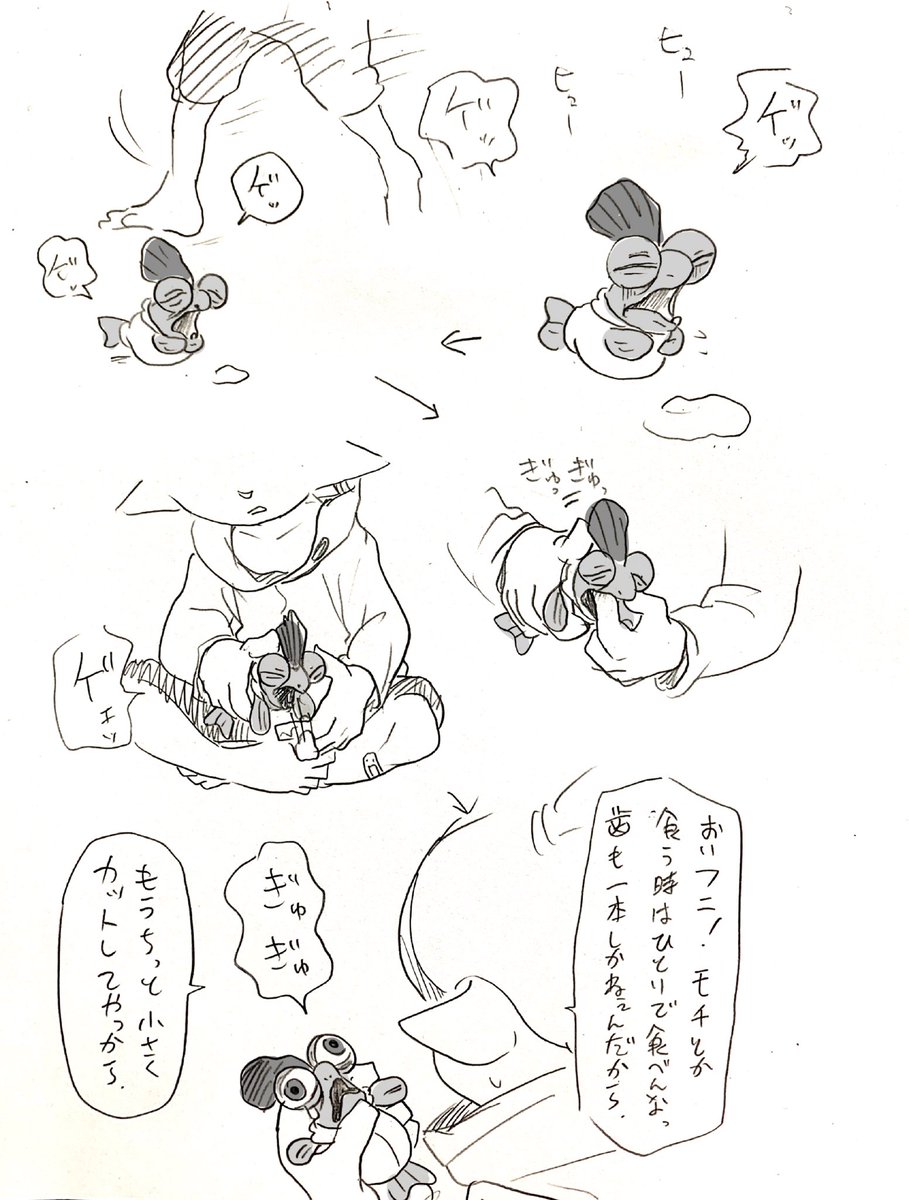 ゲッ
ヒュー
ヒュー
ゲッ
ゲッ
ゲッ
ぎゅっ
ぎゅっ
ゲェッ
おいフニ！モチとか
食う時はひとりで食べんなっ
歯も一本しかねェんだから.
ぎゅ
ぎゅ
もうちっと小さく
カットしてやっから.